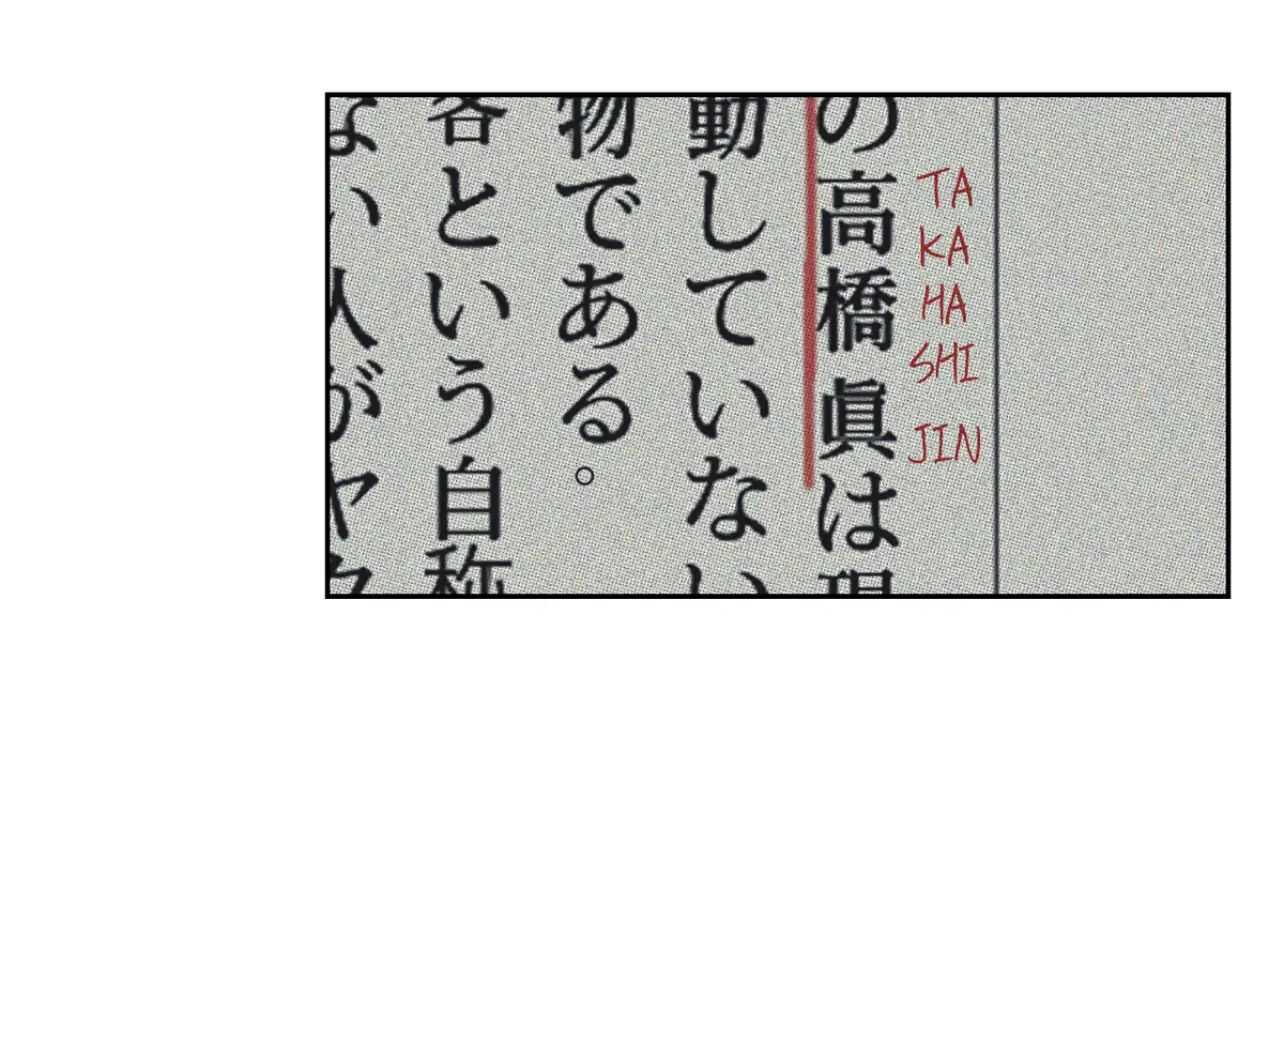 の高橋眞は
TA
KA
HA
SHI
JIN
動していない
物である。
客という自称
ない人がヤク